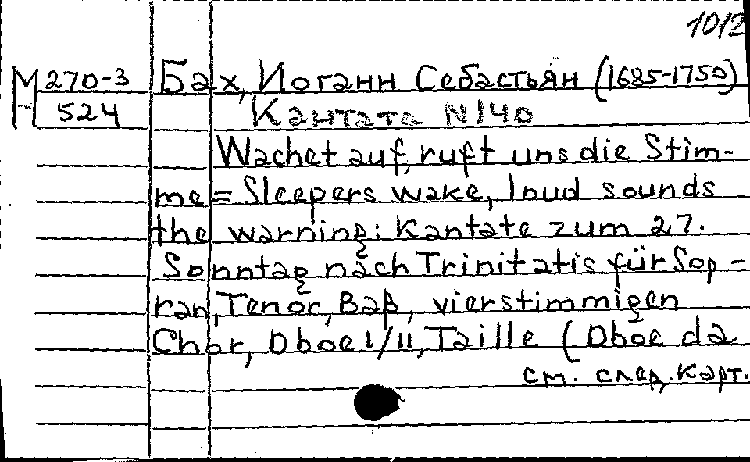 1012
М 270-3 Бах, Иоганн Себастьян (1685-1750)
524 Кантата N140
Wachet auf, ruft uns die Stim-
me = Sleepers wake, loud sounds
the warning: Kantate zum 27.
Sonntag nach Trinitatis für Sop-
ran, Tenor, Baß, vierstimmigen
Chor, Oboe I/II, Taille (Oboe da
см. след. карт.